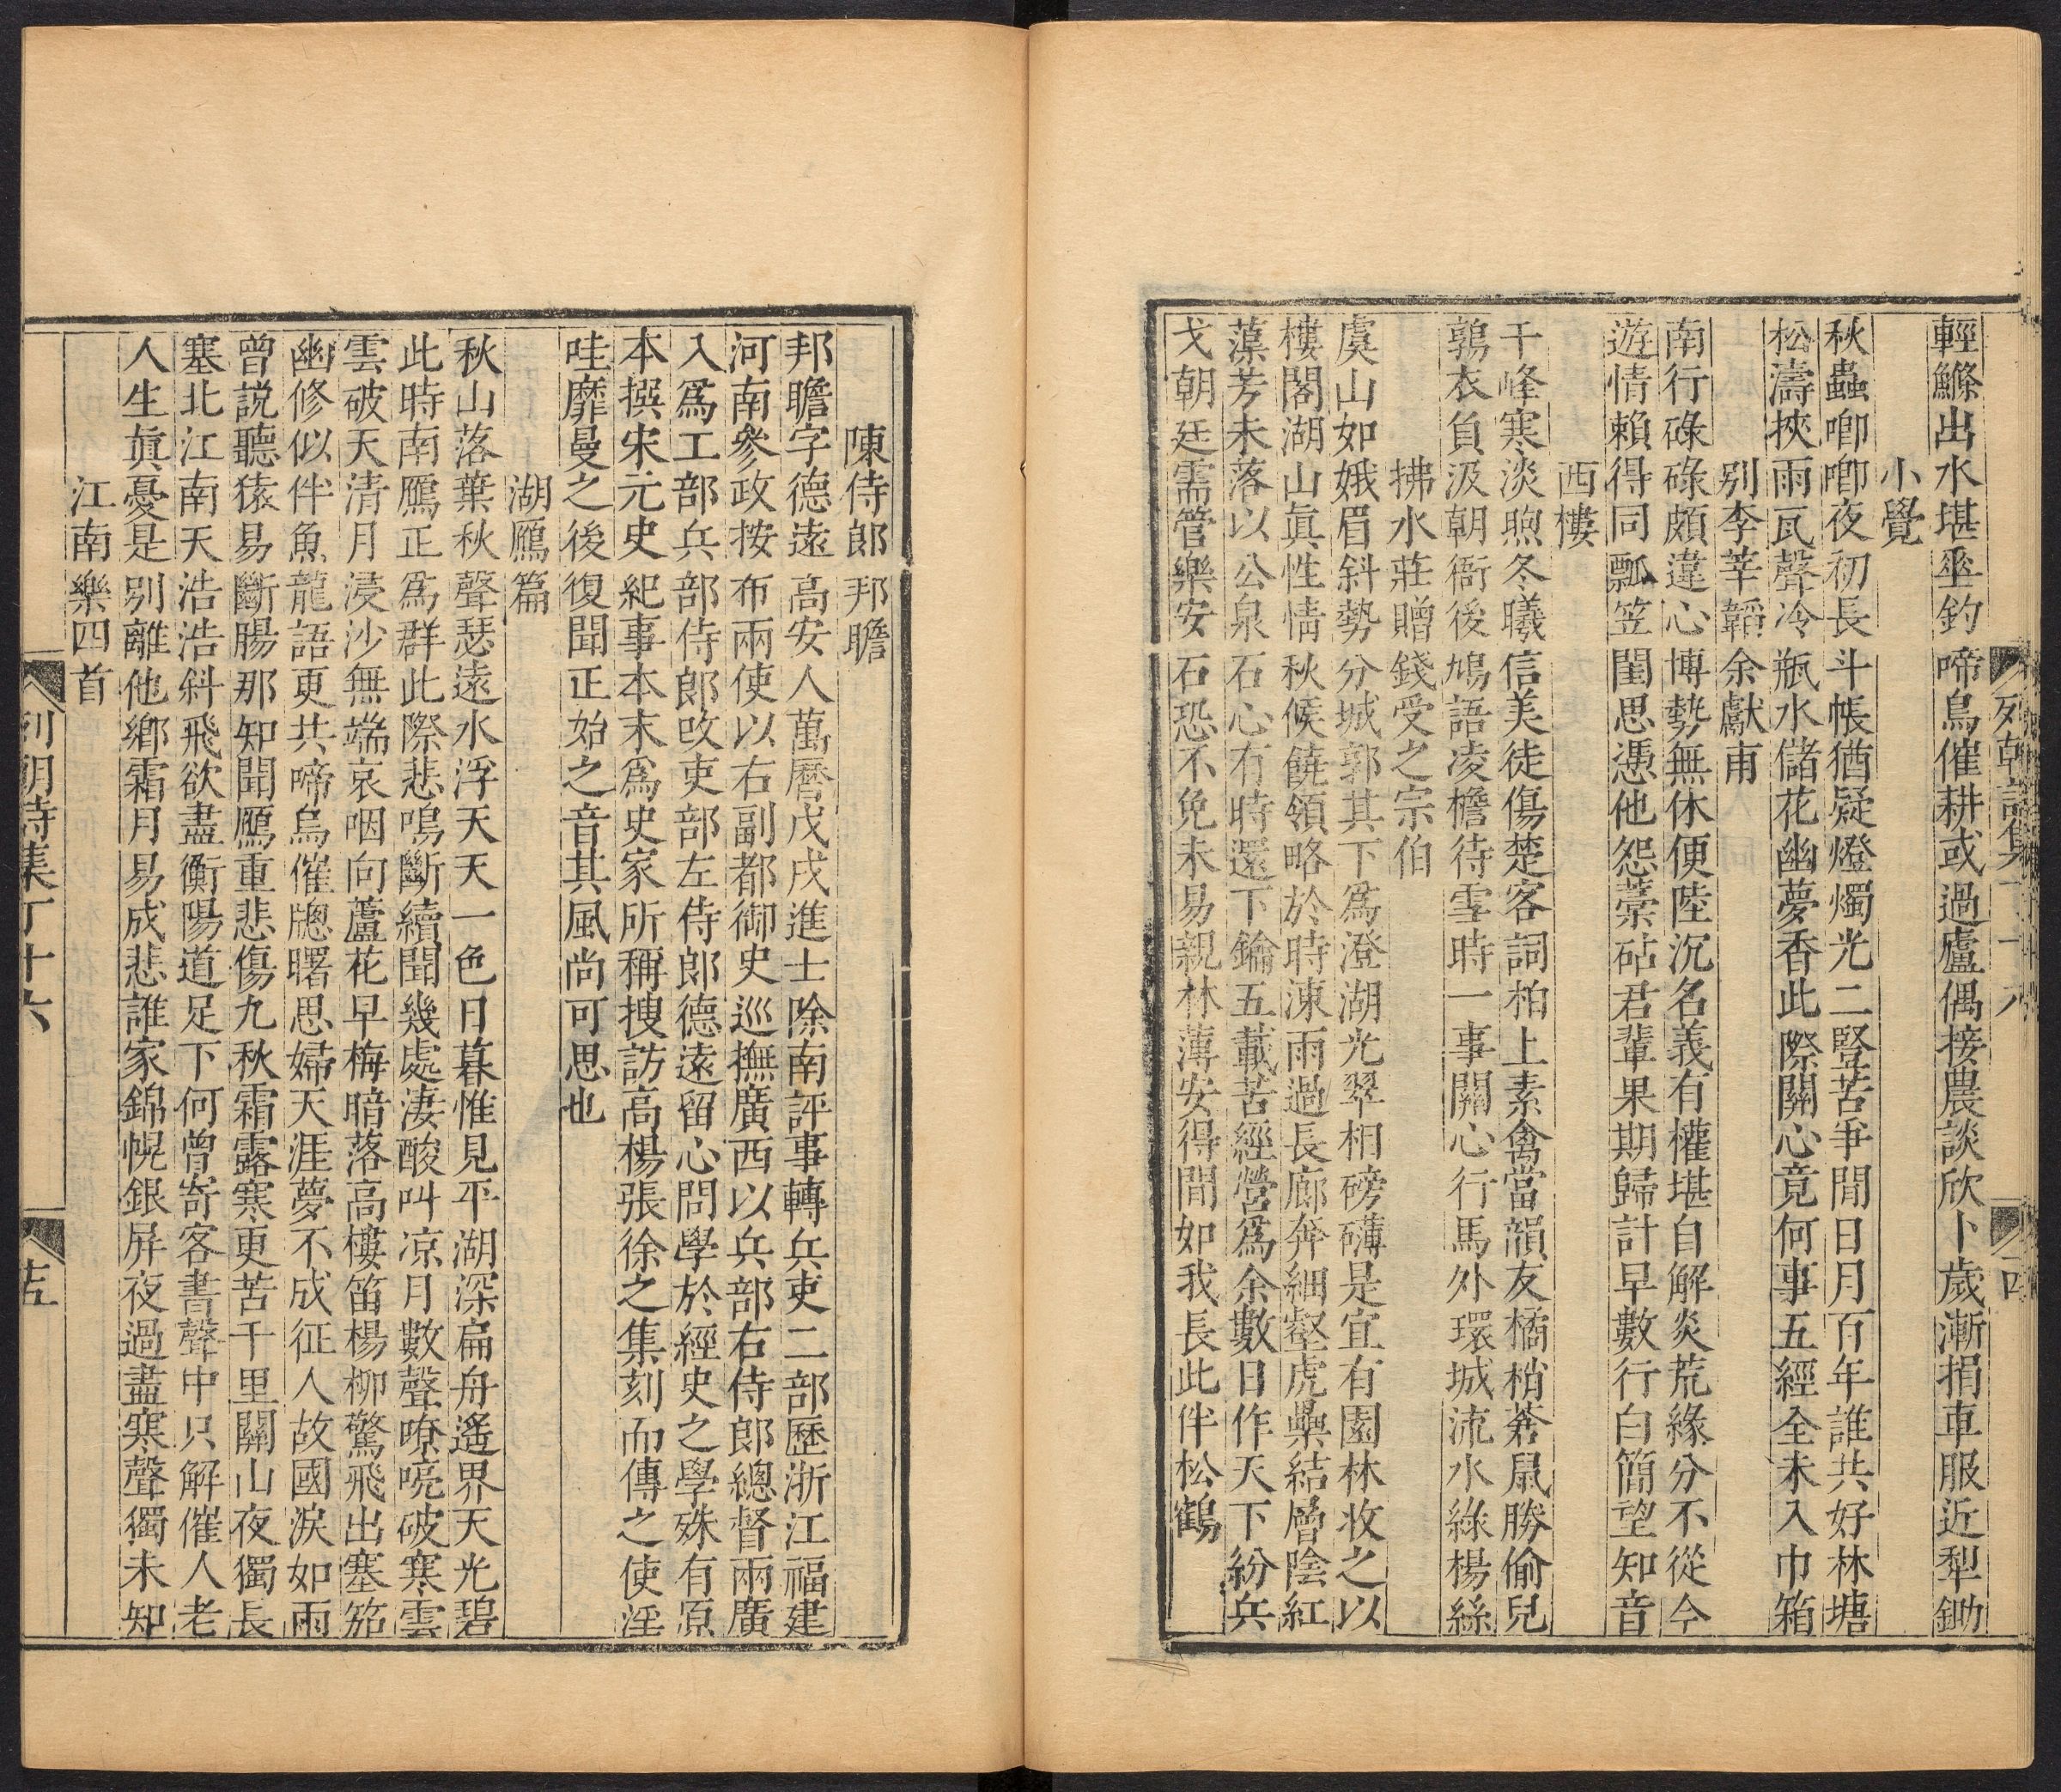 輕鰷出水堪坐釣啼鳥催耕或過廬偶接農談欣卜歲漸捐車服近犁鋤
小覺
秋蟲唧唧夜初長斗帳猶疑燈燭光二豎苦爭閒日月百年誰共好林塘
松濤挾雨瓦聲冷瓶水儲花幽夢香此際關心竟何事五經全未入巾箱
別李莘韜余獻甫
南行碌碌頗違心博勢無休便陸沉名義有權堪自解炎荒緣分不從今
遊情賴得同瓢笠閨思憑他怨藁砧君輩果期歸計早數行白簡望知音
西樓
千峰寒淡煦冬曦信美徒傷楚客詞柏上素禽當韻友橘梢蒼鼠勝偷兒
鶉衣負汲朝衙後鳩語凌檐待雪時一事關心行馬外環城流水綠楊絲
拂水莊贈錢受之宗伯
虞山如娥眉斜勢分城郭其下爲澄湖光翠相磅礴是宜有園林收之以
樓閣湖山眞性情秋候饒領略於時涷雨過長廊奔細壑虎藥結層陰紅
藻芳未落以公泉石心有時還下鑰五載苦經營爲余數日作天下紛兵
戈朝廷需管樂安石恐不免未易親林薄安得閒如我長此伴松鶴
陳侍郎邦瞻
邦瞻字德遠高安人萬曆戊戌進士除南評事轉兵吏二部歷浙江福建
河南參政按布兩使以右副都御史巡撫廣西以兵部右侍郎總督兩廣
入爲工部兵部侍郎改吏部左侍郎德遠留心問學於經史之學殊有原
本撰宋元史紀事本末爲史家所稱搜訪高楊張徐之集刻而傳之使淫
哇靡曼之後復聞正始之音其風尚可思也
湖鴈篇
秋山落葉秋聲瑟遠水浮天天一色日暮惟見平湖深扁舟遙界天光碧
此時南鴈正爲群此際悲鳴斷續聞幾處淒酸叫凉月數聲嘹喨破寒雲
雲破天清月浸沙無端哀咽向蘆花早梅暗落高樓笛楊柳驚飛出塞笳
幽修似伴魚龍語更共啼烏催牕曙思婦天涯夢不成征人故國淚如雨
曾說聽猿易斷腸那知聞鴈重悲傷九秋霜露寒更苦千里關山夜獨長
塞北江南天浩浩斜飛欲盡衡陽道足下何曾寄客書聲中只解催人老
人生眞憂是別離他鄉霜月易成悲誰家錦幌銀屏夜過盡寒聲獨未知
江南樂四首
列朝詩集丁十六
十五